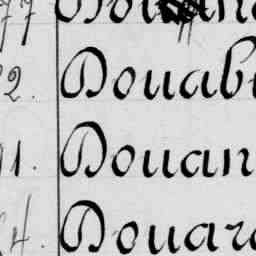 77
2. Douab
1. Douan
4. Douar